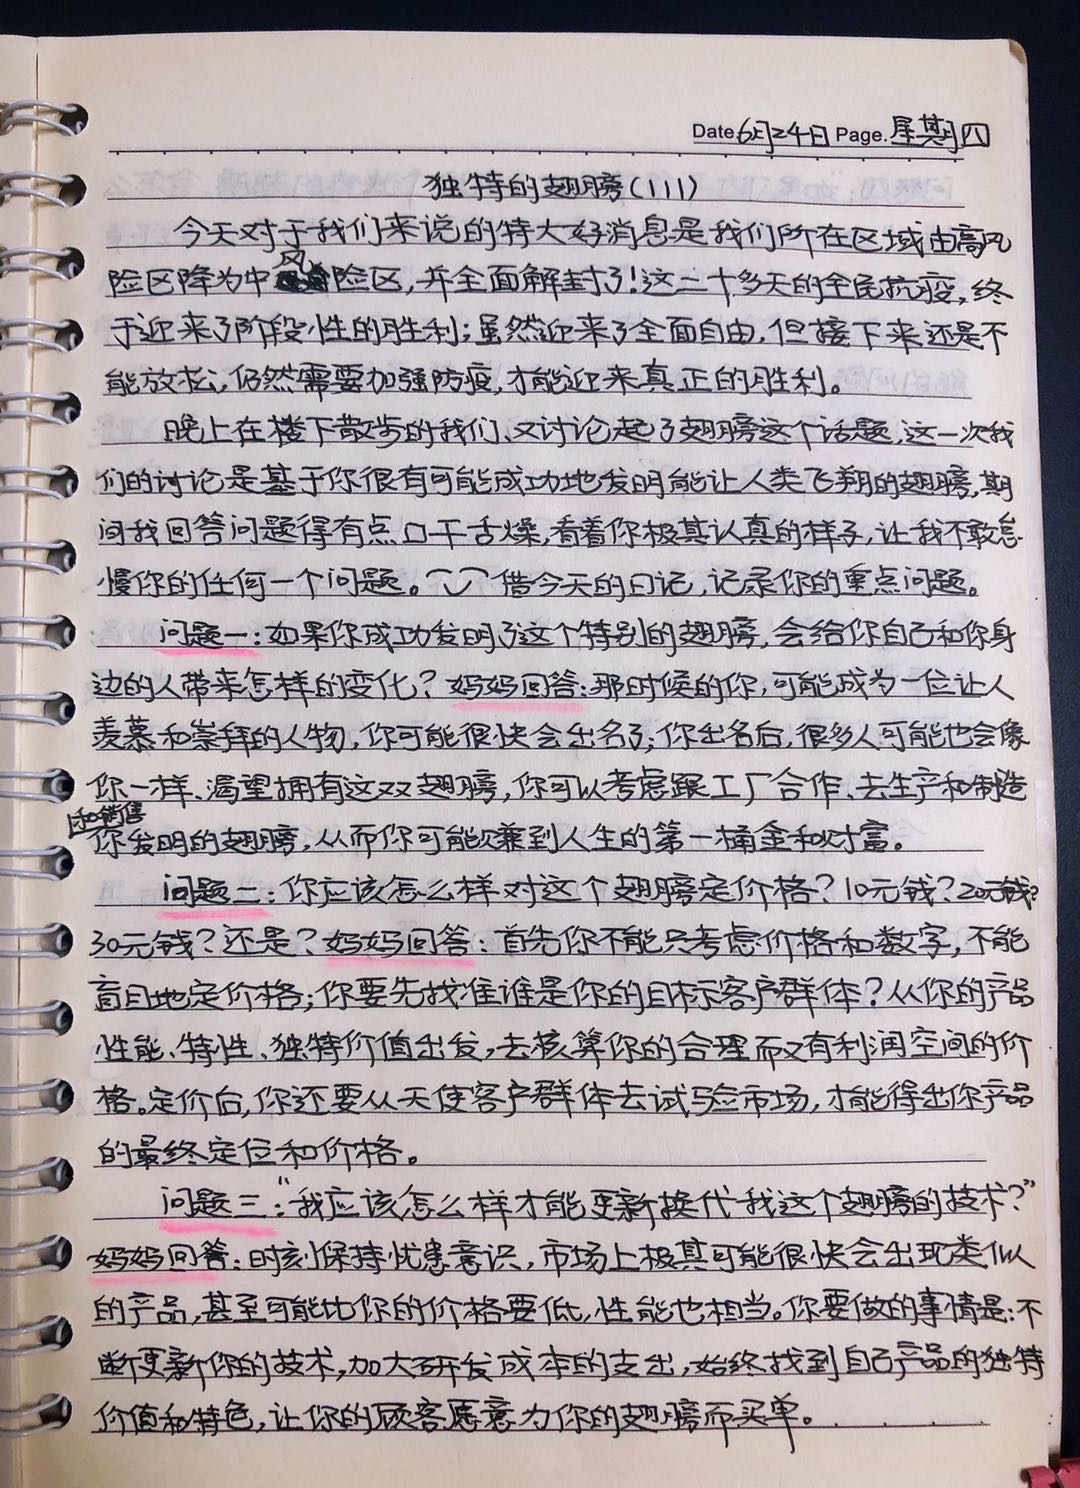 Date 6月24日 Page. 星期四
独特的翅膀(111)
今天对于我们来说的特大好消息是我们所在区域由高风
险区降为中风险区,并全面解封了!这二十多天的全民抗疫,终
于迎来了阶段性的胜利;虽然迎来了全面自由,但接下来还是不
能放松,仍然需要加强防疫,才能迎来真正的胜利。
晚上在楼下散步的我们,又讨论起了翅膀这个话题,这一次我
们的讨论是基于你很有可能成功地发明能让人类飞翔的翅膀,期
间我回答问题得有点口干舌燥,看着你极其认真的样子,让我不敢怠
慢你的任何一个问题。借今天的日记,记录你的重点问题。
问题一:如果你成功发明了这个特别的翅膀,会给你自己和你身
边的人带来怎样的变化?妈妈回答:那时候的你,可能成为一位让人
羡慕和崇拜的人物,你可能很快会出名了;你出名后,很多人可能也会像
你一样、渴望拥有这双翅膀,你可以考虑跟工厂合作、去生产和制造
和销售
你发明的翅膀,从而你可能赚到人生的第一桶金和财富。
问题二:你应该怎么样对这个翅膀定价格?10元钱?20元钱?
30元钱?还是?妈妈回答:首先你不能只考虑价格和数字,不能
盲目地定价格;你要先找准谁是你的目标客户群体?从你的产品
性能、特性、独特价值出发,去核算你的合理而又有利润空间的价
格。定价后,你还要从天使客户群体去试验市场,才能得出你产品
的最终定位和价格。
问题三:“我应该怎么样才能更新换代我这个翅膀的技术?”
妈妈回答:时刻保持忧患意识,市场上极其可能很快会出现类似
的产品,甚至可能比你的价格要低,性能也相当。你要做的事情是:不
断更新你的技术,加大研发成本的支出,始终找到自己产品的独特
价值和特色,让你的顾客愿意为你的翅膀而买单。